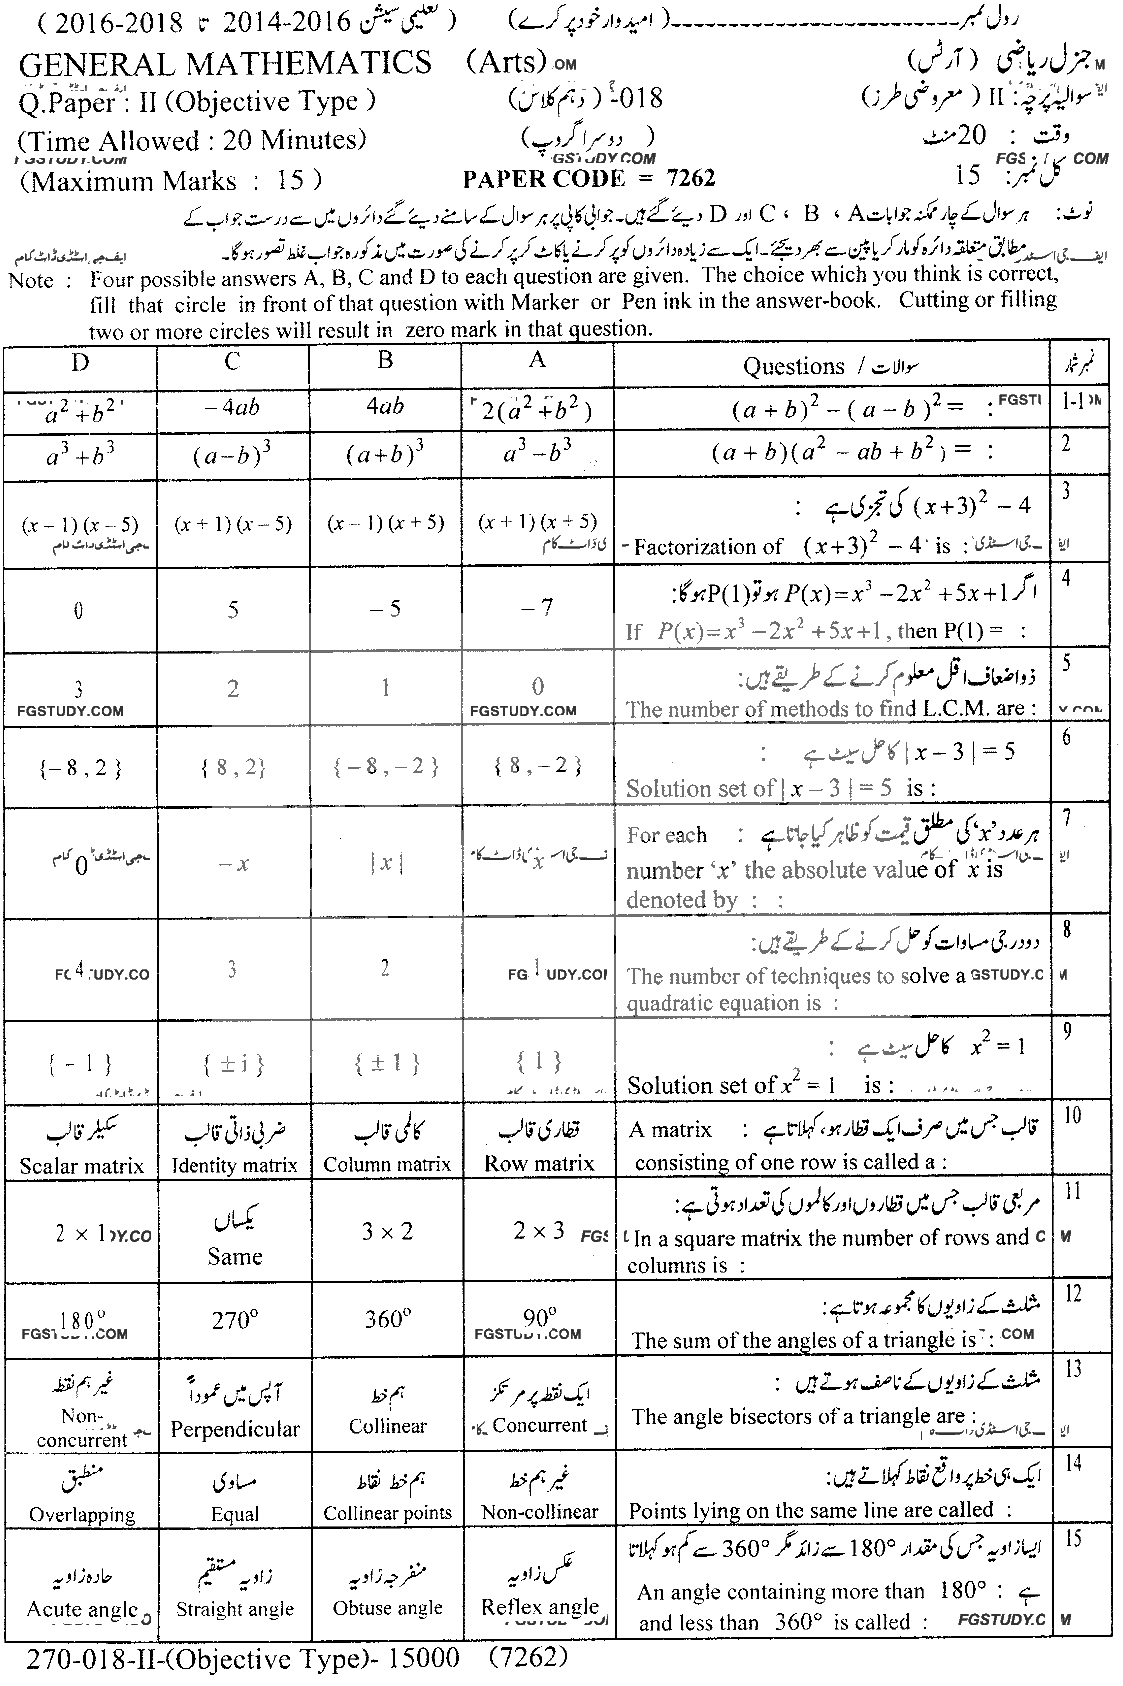 رول نمبر ------------------------ (امیدوار خود پر کرے) (تعلیمی سیشن 2016-2014 تا 2018-2016)
GENERAL MATHEMATICS (Arts) OM جنرل ریاضی (آرٹس) M
Q.Paper : II (Objective Type) 018-(دہم کلاس) سوالیہ پرچہ : II (معروضی طرز)
(Time Allowed : 20 Minutes) (دوسرا گروپ) وقت : 20 منٹ
GSTUDY.COM FGS COM
(Maximum Marks : 15) PAPER CODE = 7262 کل نمبر: 15
نوٹ: ہر سوال کے چار ممکنہ جوابات A ، B ، C اور D دیئے گئے ہیں۔ جوابی کاپی پر ہر سوال کے سامنے دیئے گئے دائروں میں سے درست جواب کے
مطابق متعلقہ دائرہ کو مارکر یا پین سے بھر دیجئے۔ ایک سے زیادہ دائروں کو پر کرنے یا کاٹ کر پر کرنے کی صورت میں مذکورہ جواب غلط تصور ہوگا۔ ایف جی اسٹڈی ڈاٹ کام
Note : Four possible answers A, B, C and D to each question are given. The choice which you think is correct,
fill that circle in front of that question with Marker or Pen ink in the answer-book. Cutting or filling
two or more circles will result in zero mark in that question.
D C B A Questions / سوالات نمبر شمار
a² + b² −4ab 4ab 2(a² + b²) (a + b)² − (a − b)² = : FGSTU 1-1
a³ + b³ (a−b)³ (a+b)³ a³ − b³ (a + b)(a² − ab + b²) = : 2
(x+3)² − 4 کی تجزی ہے : 3
(x − 1)(x − 5) (x + 1)(x − 5) (x − 1)(x + 5) (x + 1)(x + 5)
Factorization of (x+3)² − 4 is :
اگر P(x)=x³ −2x² +5x+1 ہو تو P(1) ہوگا: 4
0 5 −5 −7
If P(x)=x³ −2x² +5x+1, then P(1) = :
ذواضعاف اقل معلوم کرنے کے طریقے ہیں: 5
3 2 1 0
FGSTUDY.COM FGSTUDY.COM The number of methods to find L.C.M. are :
|x − 3| = 5 کا حل سیٹ ہے : 6
{−8, 2} {8, 2} {−8, −2} {8, −2}
Solution set of |x − 3| = 5 is :
For each : ہر عدد 'x' کی مطلق قیمت کو ظاہر کیا جاتا ہے 7
0 −x |x| x number 'x' the absolute value of x is
denoted by : :
دو درجی مساوات کو حل کرنے کے طریقے ہیں: 8
4 3 2 1 The number of techniques to solve a GSTUDY.C M
quadratic equation is :
x² = 1 کا حل سیٹ ہے : 9
{−1} {±i} {±1} {1}
Solution set of x² = 1 is :
سکیلر قالب ضربی ذاتی قالب کالمی قالب قطاری قالب A matrix : قالب جس میں صرف ایک قطار ہو، کہلاتا ہے 10
Scalar matrix Identity matrix Column matrix Row matrix consisting of one row is called a :
مربعی قالب جس میں قطاروں اور کالموں کی تعداد ہوتی ہے: 11
2 × 1 یکساں 3 × 2 2 × 3 In a square matrix the number of rows and C M
Same columns is :
مثلث کے زاویوں کا مجموعہ ہوتا ہے: 12
180° 270° 360° 90°
FGSTUDY.COM FGSTUDY.COM The sum of the angles of a triangle is : COM
غیر ہم نقطہ آپس میں عموداً ہم خط ایک نقطہ پر مرتکز مثلث کے زاویوں کے ناصف ہوتے ہیں : 13
Non-concurrent Perpendicular Collinear Concurrent The angle bisectors of a triangle are :
منطبق مساوی ہم خط نقاط غیر ہم خط ایک ہی خط پر واقع نقاط کہلاتے ہیں: 14
Overlapping Equal Collinear points Non-collinear Points lying on the same line are called :
ایسا زاویہ جس کی مقدار 180° سے زائد مگر 360° سے کم ہو کہلاتا 15
حادہ زاویہ زاویہ مستقیم منفرجہ زاویہ عکس زاویہ An angle containing more than 180° : ہے
Acute angle Straight angle Obtuse angle Reflex angle and less than 360° is called : FGSTUDY.C M
270-018-II-(Objective Type)- 15000 (7262)